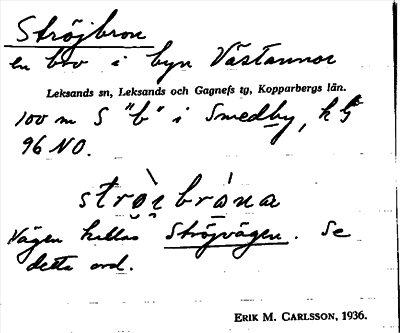 Ströjbron
en bro i byn Västannor
Leksands sn, Leksands och Gagnefs tg, Kopparbergs län.
100 m S "b" i Smedby, k G
96 NO.
strò̤i brå̤na
Vägen kallas Ströjvägen. Se
detta ord.
ERIK M. CARLSSON, 1936.